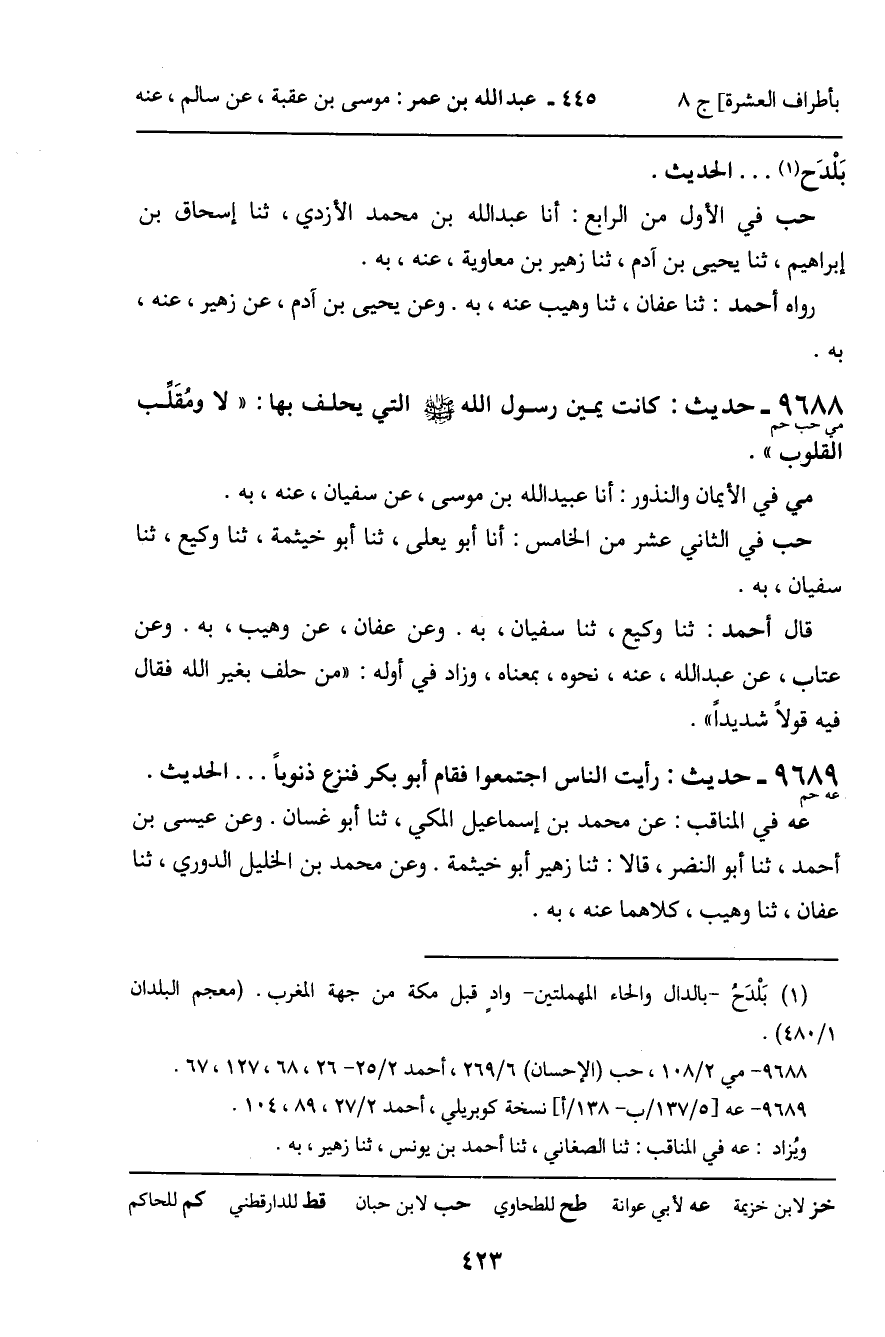 بأطراف العشرة] ج ٨ ٤٤٥ ـ عبدالله بن عمر : موسى بن عقبة ، عن سالم ، عنه
بَلْدَح(١) . . . الحديث .
حب في الأول من الرابع : أنا عبدالله بن محمد الأزدي ، ثنا إسحاق بن
إبراهيم ، ثنا يحيى بن آدم ، ثنا زهير بن معاوية ، عنه ، به .
رواه أحمد : ثنا عفان ، ثنا وهيب عنه ، به . وعن يحيى بن آدم ، عن زهير ، عنه ،
به .
٩٦٨٨ ـ حديث : كانت يمين رسول الله ﷺ التي يحلف بها : « لا ومُقَلِّب
مي حب حم
القلوب » .
مي في الأيمان والنذور : أنا عبيدالله بن موسى ، عن سفيان ، عنه ، به .
حب في الثاني عشر من الخامس : أنا أبو يعلى ، ثنا أبو خيثمة ، ثنا وكيع ، ثنا
سفيان ، به .
قال أحمد : ثنا وكيع ، ثنا سفيان ، به . وعن عفان ، عن وهيب ، به . وعن
عتاب ، عن عبدالله ، عنه ، نحوه ، بمعناه ، وزاد في أوله : «من حلف بغير الله فقال
فيه قولاً شديداً» .
٩٦٨٩ ـ حديث : رأيت الناس اجتمعوا فقام أبو بكر فنزع ذنوباً . . . الحديث .
عه حم
عه في المناقب : عن محمد بن إسماعيل المكي ، ثنا أبو غسان . وعن عيسى بن
أحمد ، ثنا أبو النضر ، قالا : ثنا زهير أبو خيثمة . وعن محمد بن الخليل الدوري ، ثنا
عفان ، ثنا وهيب ، كلاهما عنه ، به .
(١) بَلْدَحُ -بالدال والحاء المهملتين- وادٍ قبل مكة من جهة المغرب . (معجم البلدان
١/‏٤٨٠) .
٩٦٨٨- مي ٢/‏١٠٨ ، حب (الإحسان) ٦/‏٢٦٩ ، أحمد ٢/‏٢٥- ٢٦ ، ٦٨ ، ١٢٧ ، ٦٧ .
٩٦٨٩- عه [٥/‏١٣٧/‏ب- ١٣٨/‏أ] نسخة كوبريلي ، أحمد ٢/‏٢٧ ، ٨٩ ، ١٠٤ .
ويُزاد : عه في المناقب : ثنا الصغاني ، ثنا أحمد بن يونس ، ثنا زهير ، به .
خز لابن خزيمة عه لأبي عوانة طح للطحاوي حب لابن حبان قط للدارقطني كم للحاكم
٤٢٣